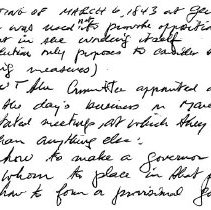 TING OF MARCH 6, 1843 at Ge
was used not to provoke opposition
in the wording itself
lution only proposes to consider
ing measures).
T the Committee appointed
the day's business in Mar
stated meetings at which they
than anything else:
how to make a governor
whom to place in that p
how to form a provisional g